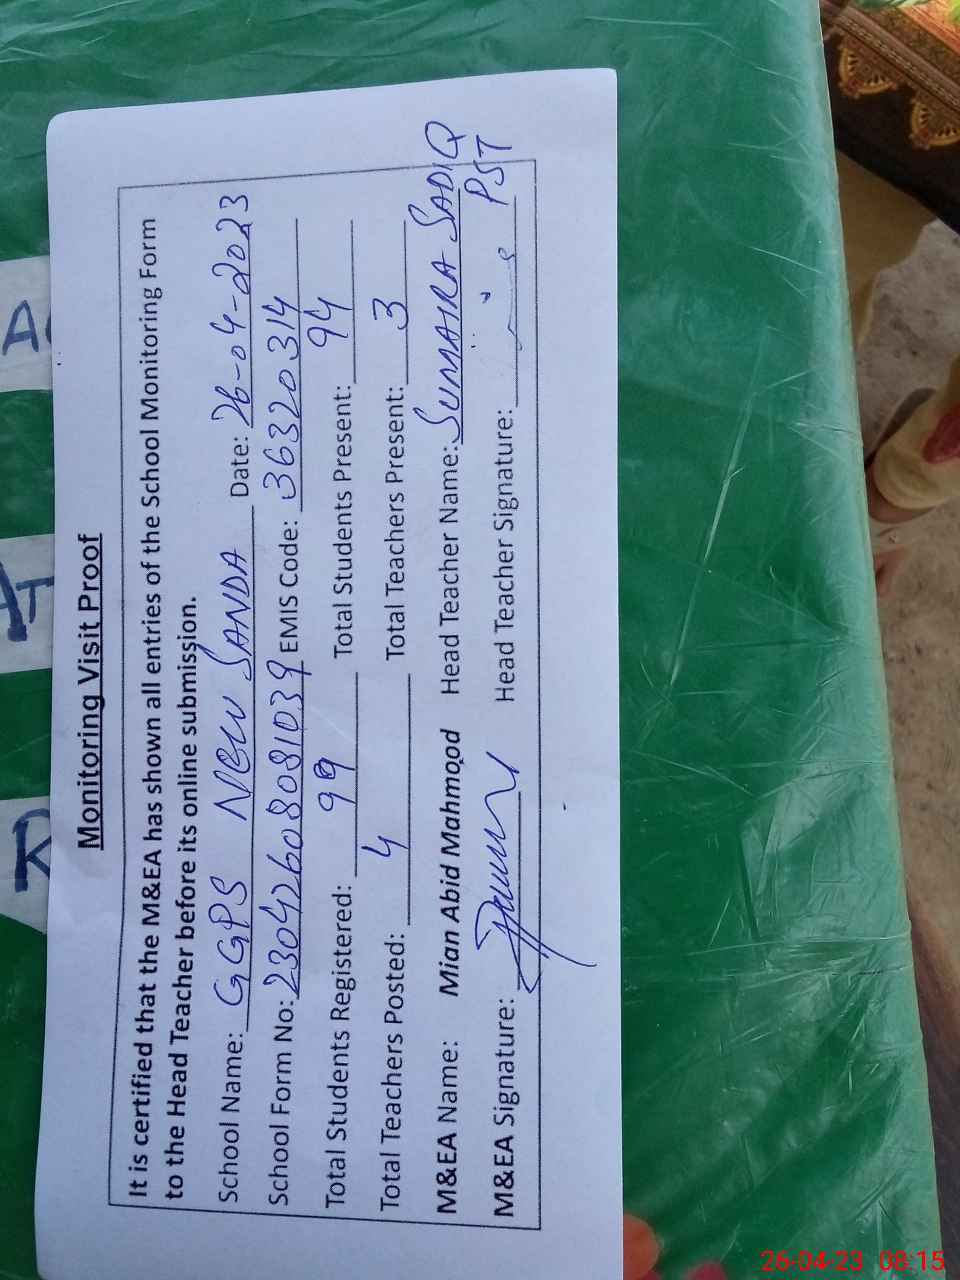 Monitoring Visit Proof
It is certified that the M&EA has shown all entries of the School Monitoring Form
to the Head Teacher before its online submission.
School Name: GGPS NEW SANDA Date: 26-04-2023
School Form No: 23042608081039 EMIS Code: 36320314
Total Students Registered: 99 Total Students Present: 94
Total Teachers Posted: 4 Total Teachers Present: 3
M&EA Name: Mian Abid Mahmood Head Teacher Name: SUMAIRA SADIQ
PST
M&EA Signature: Head Teacher Signature:
R
AT
A
26-04-23 08:15